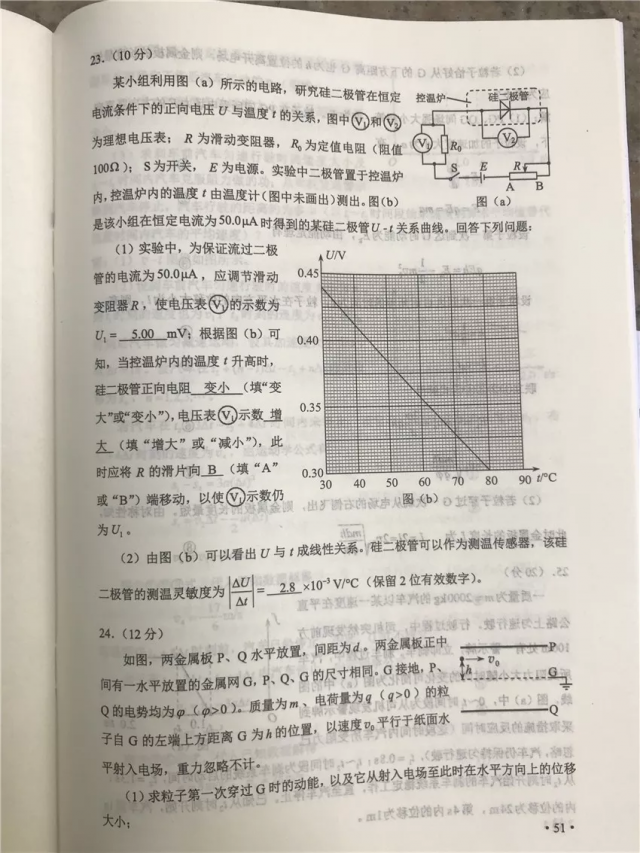 23.(10分)
某小组利用图(a)所示的电路,研究硅二极管在恒定
电流条件下的正向电压U与温度t的关系,图中V₁和V₂
为理想电压表;R为滑动变阻器,R₀为定值电阻(阻值
100Ω);S为开关,E为电源。实验中二极管置于控温炉
内,控温炉内的温度t由温度计(图中未画出)测出。图(b)
是该小组在恒定电流为50.0μA时得到的某硅二极管U-t关系曲线。回答下列问题:
控温炉
硅二极管
V₁
R₀
V₂
S
E
R
A
B
图(a)
(1)实验中,为保证流过二极
管的电流为50.0μA,应调节滑动
变阻器R,使电压表V₁的示数为
U₁= 5.00 mV;根据图(b)可
知,当控温炉内的温度t升高时,
硅二极管正向电阻 变小 (填“变
大”或“变小”),电压表V₁示数 增
大 (填“增大”或“减小”),此
时应将R的滑片向 B (填“A”
或“B”)端移动,以使V₁示数仍
为U₁。
U/V
0.45
0.40
0.35
0.30
30 40 50 60 70 80 90 t/℃
图(b)
(2)由图(b)可以看出U与t成线性关系。硅二极管可以作为测温传感器,该硅
二极管的测温灵敏度为|ΔU/Δt|= 2.8 ×10⁻³V/℃(保留2位有效数字)。
24.(12分)
如图,两金属板P、Q水平放置,间距为d。两金属板正中
间有一水平放置的金属网G,P、Q、G的尺寸相同。G接地,P、
Q的电势均为φ(φ>0)。质量为m、电荷量为q(q>0)的粒
子自G的左端上方距离G为h的位置,以速度v₀平行于纸面水
平射入电场,重力忽略不计。
P
h
v₀
G
Q
(1)求粒子第一次穿过G时的动能,以及它从射入电场至此时在水平方向上的位移
大小;
·51·